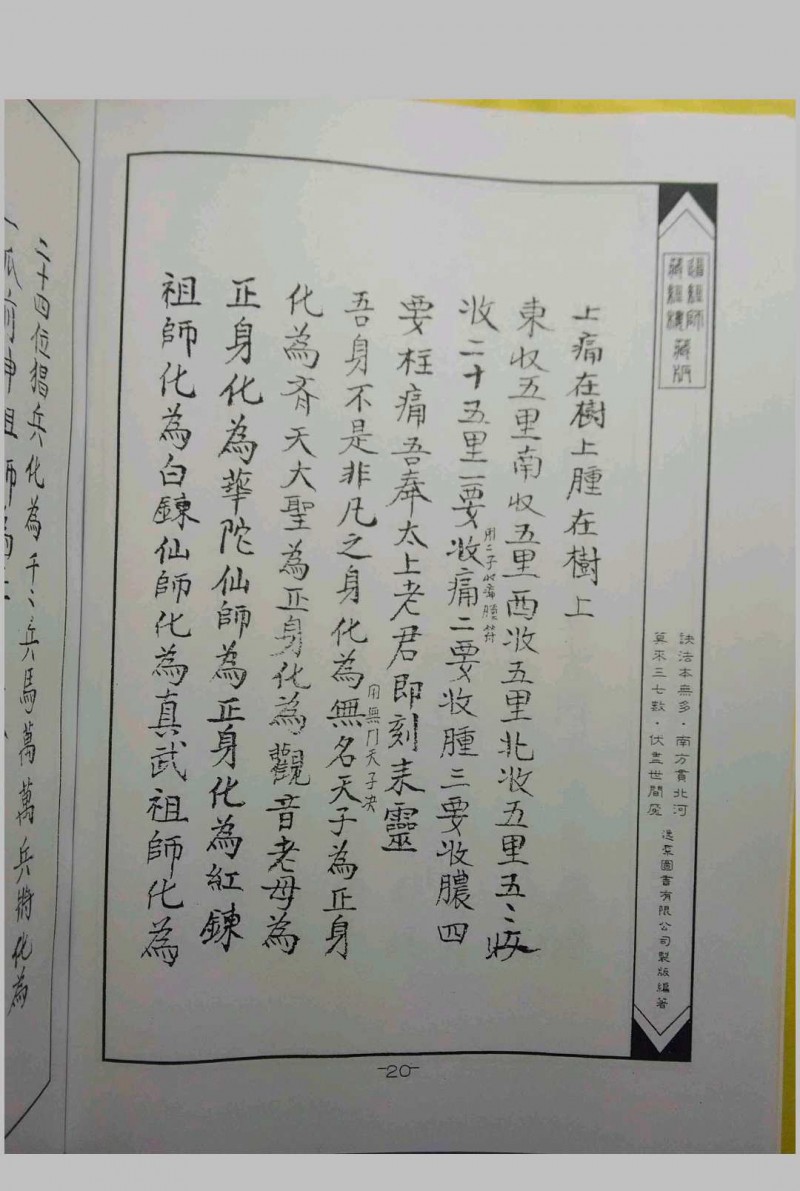 上痛在樹上腫在樹上
東收五里南收五里西收五里北收五里五〻收
收二十五里一要收痛二要收腫三要收膿四
用二子收痛腫符
要柱痛吾奉太上老君即刻耒靈
吾身不是非凡之身化為無名天子為正身
用無门天子决
化為齐天大聖為正身化為觀音老母為
正身化為華陀仙師為正身化為紅鍊
祖師化為白鍊仙師化為真武祖師化為
藏經樓藏版
訣法本無多·南方貫北河
算來三七數·伏盡世間魔
逸群圖書有限公司製版編著
-20-
二十四位猖兵化為千〻兵馬萬萬兵將化為